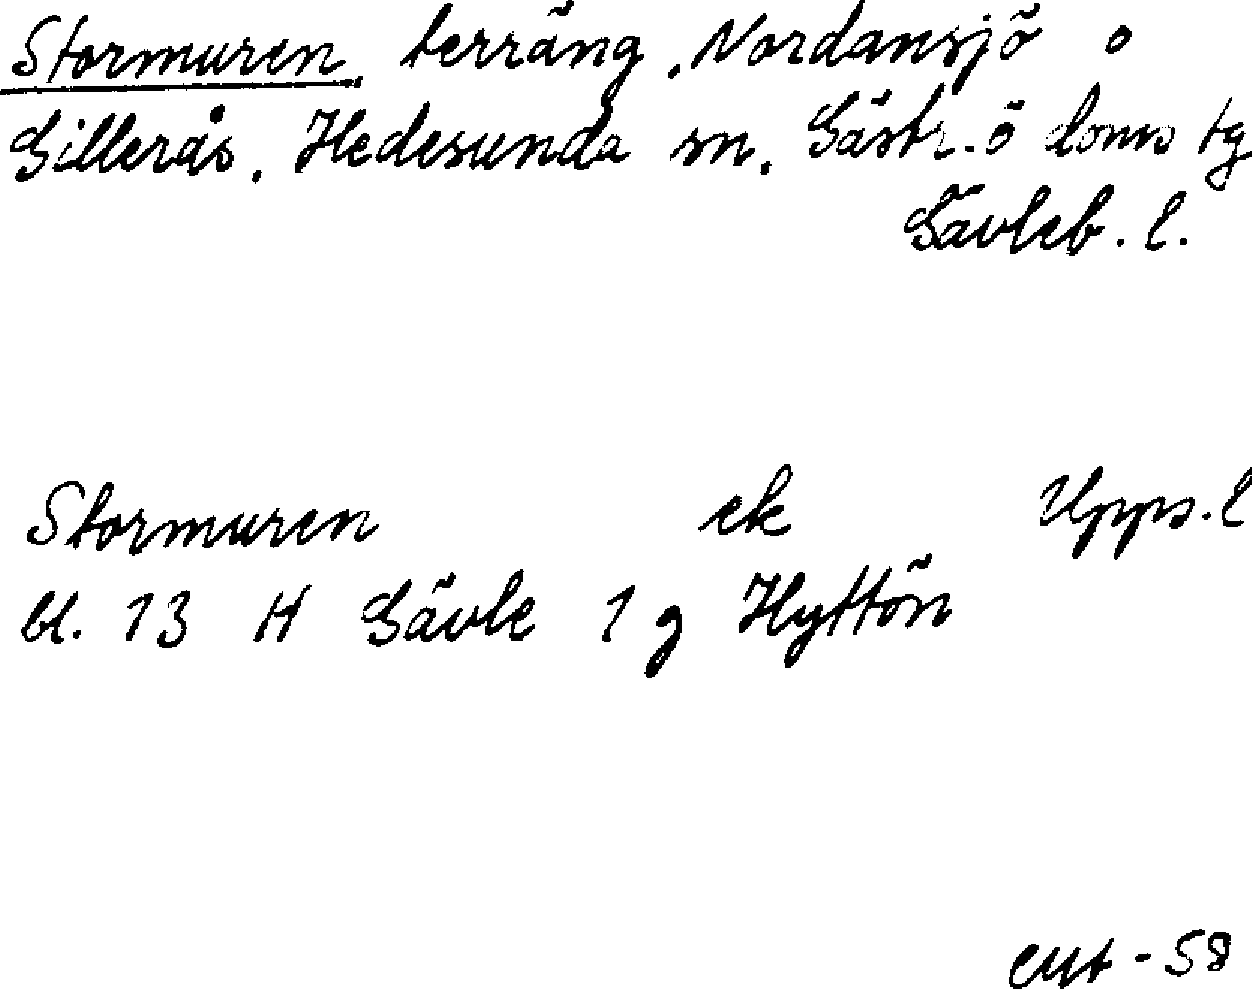 Stormuren, terräng, Nordansjö o
Gilleräs, Hedesunda sn, Gästr. ö doms tg
Gävleb. l.
Stormuren ek Upps. l
bl. 13 H Gävle 1 g Hyttön
-58